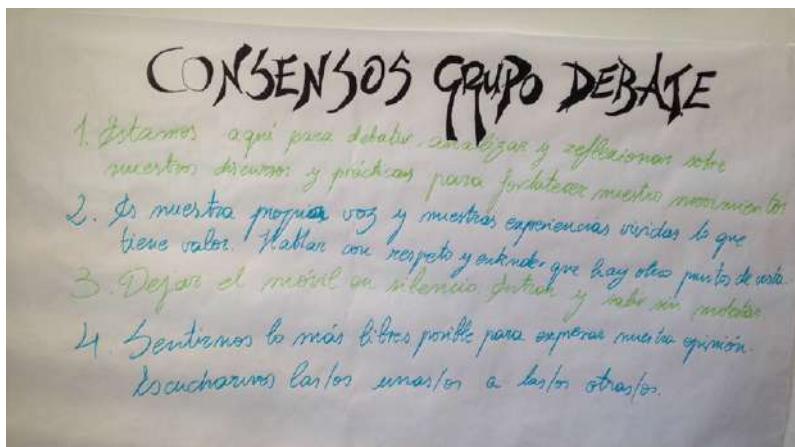 CONSENSOS GRUPO DEBATE
1. Estamos aquí para debatir, analizar y reflexionar sobre
nuestros discursos y prácticas para fortalecer nuestro movimiento
2. Es nuestra propia voz y nuestras experiencias vividas lo que
tiene valor. Hablar con respeto y entender que hay otros puntos de vista.
3. Dejar el móvil en silencio, entrar y salir sin molestar.
4. Sentirnos lo más libres posible para expresar nuestra opinión.
Escucharnos las/os unas/os a las/os otras/os.